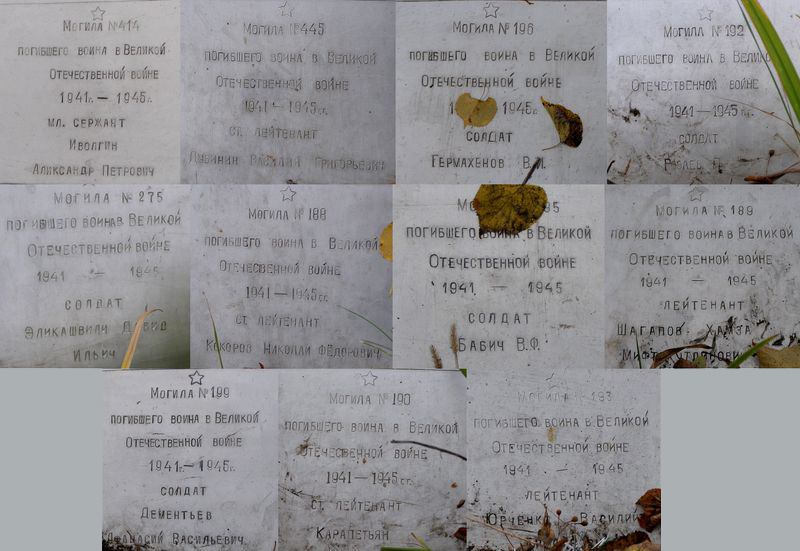 Могила № 414
погибшего воина в Великой
Отечественной войне
1941г. — 1945г.
мл. сержант
Иволгин
Александр Петрович
Могила № 445
погибшего воина в Великой
Отечественной войне
1941 — 1945гг.
ст. лейтенант
Лубинин Василий Григорьевич
Могила № 196
погибшего воина в Великой
Отечественной войне
1945г.
солдат
Гермахенов В.И.
Могила № 192
погибшего воина в Великой
Отечественной войне
1941 — 1945гг.
солдат
Могила № 275
погибшего воина в Великой
Отечественной войне
1941 — 1945
солдат
Эликашвили Давид
Ильич
Могила № 188
погибшего воина в Великой
Отечественной войне
1941 — 1945гг.
ст. лейтенант
Кокоров Николай Фёдорович
95
погибшего воина в Великой
Отечественной войне
1941 — 1945
солдат
Бабич В.Ф.
Могила № 189
погибшего воина в Великой
Отечественной войне
1941 — 1945
лейтенант
Шагапов Хамза
Могила № 199
погибшего воина в Великой
Отечественной войне
1941г. — 1945г.
солдат
Дементьев
Афанасий Васильевич
Могила № 190
погибшего воина в Великой
Отечественной войне
1941 — 1945гг.
ст. лейтенант
Карапетьян
Могила № 193
погибшего воина в Великой
Отечественной войне
1941 — 1945
лейтенант
Юрченко Василий